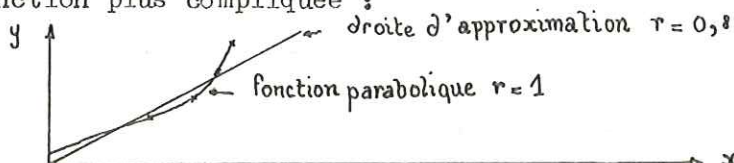 nction plus compliquée :
y
droite d'approximation r = 0,8
fonction parabolique r = 1
x